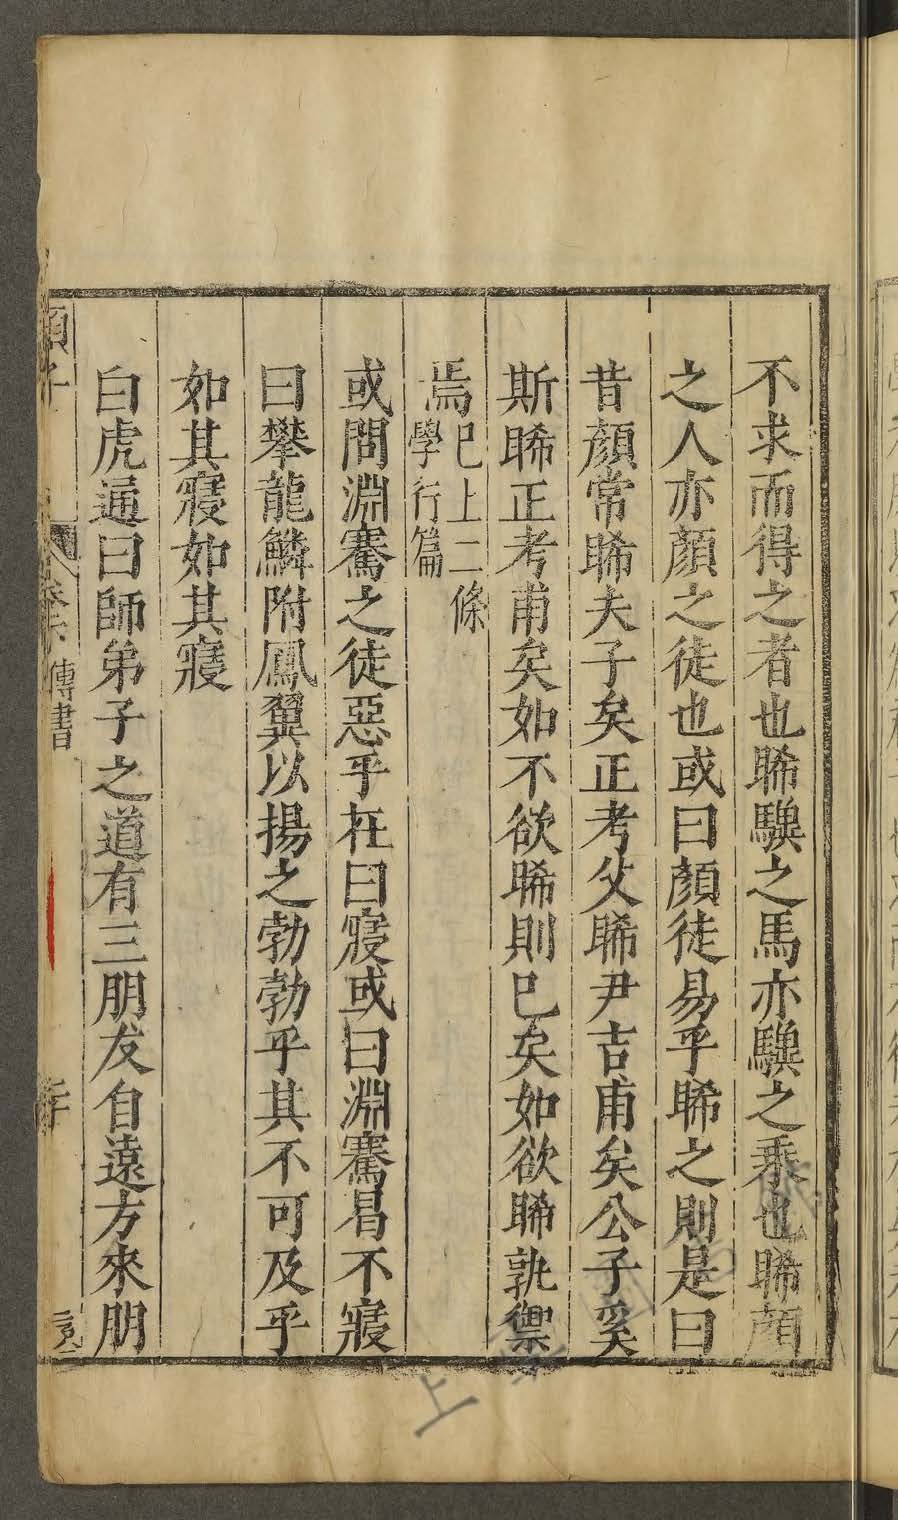 不求而得之者也睎驥之馬亦驥之乘也睎顏
之人亦顏之徒也或曰顏徒易乎睎之則是曰
昔顏常睎夫子矣正考父睎尹吉甫矣公子奚
斯睎正考甫矣如不欲睎則已矣如欲睎孰禦
焉已上二條學行篇
或問淵騫之徒惡乎在曰寢或曰淵騫曷不寢
曰攀龍鱗附鳳翼以揚之勃勃乎其不可及乎
如其寢如其寢
白虎通曰師弟子之道有三朋友自遠方來朋
傳書